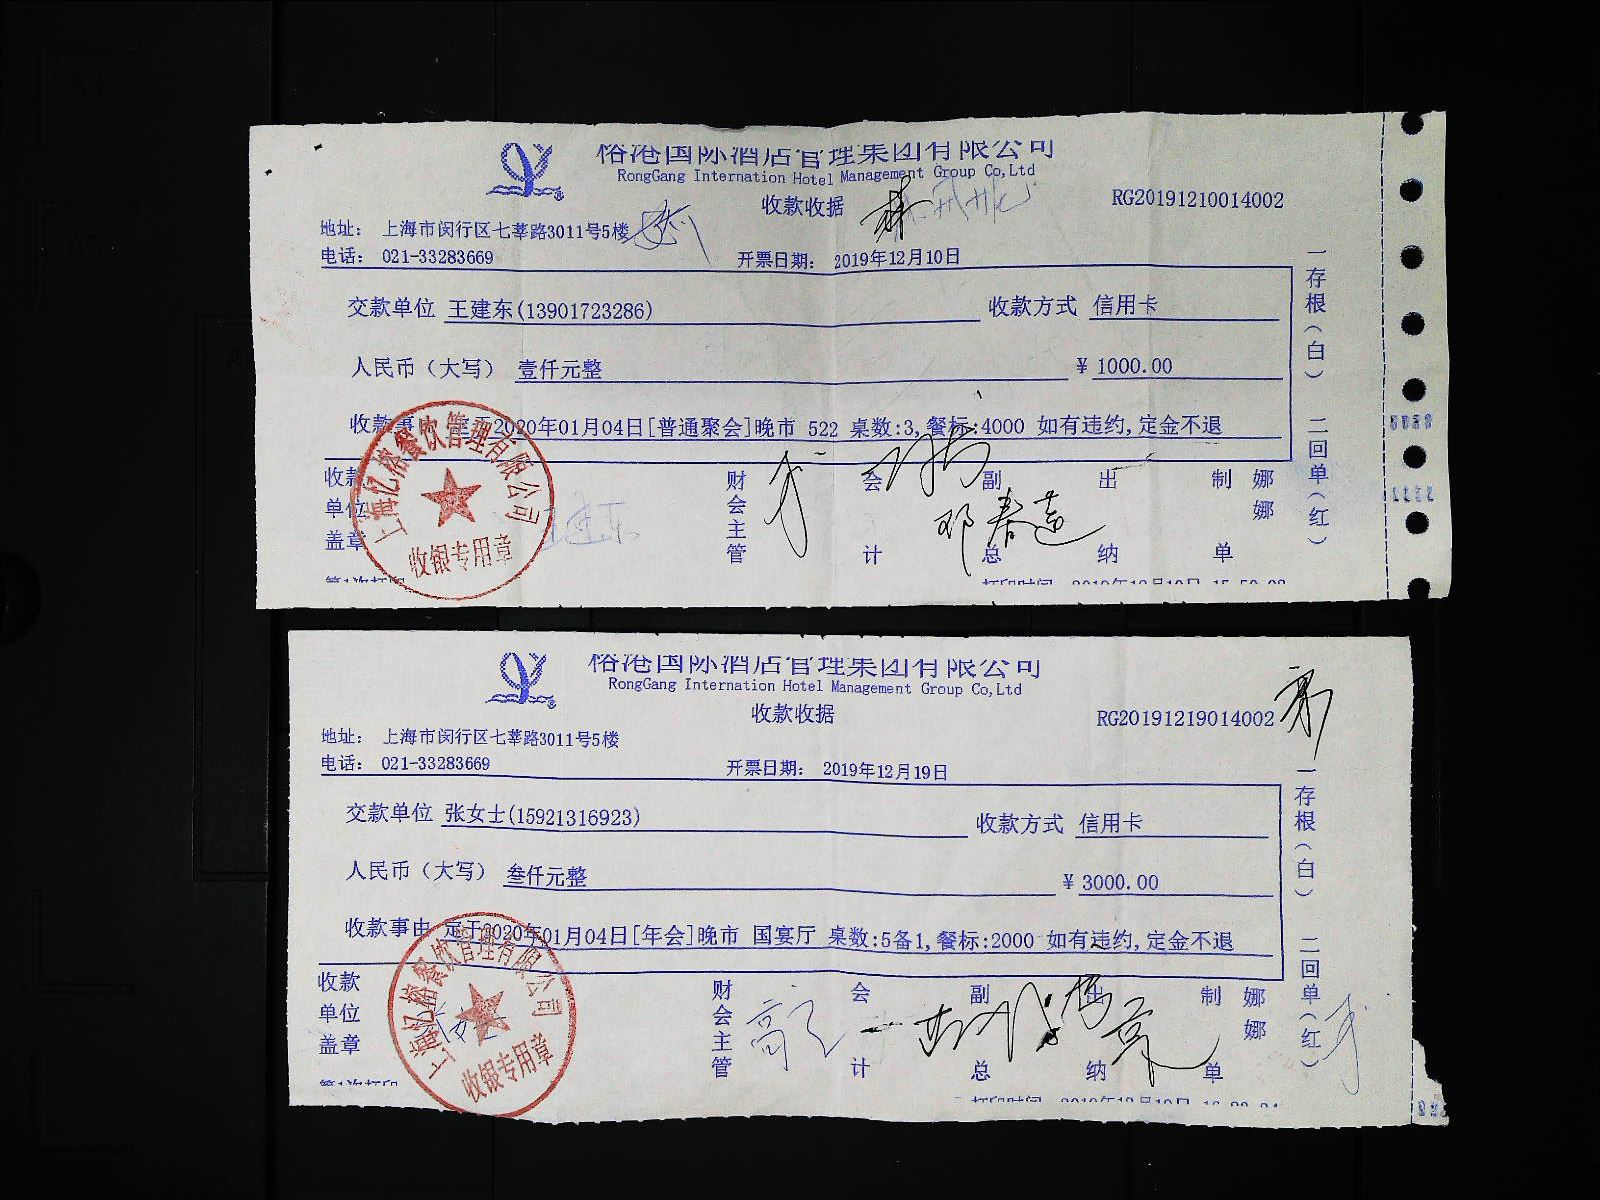 榕港国际酒店管理集团有限公司
RongGang Internation Hotel Management Group Co,Ltd
收款收据
RG20191210014002
地址: 上海市闵行区七莘路3011号5楼
电话: 021-33283669
开票日期: 2019年12月10日
交款单位 王建东(13901723286) 收款方式 信用卡
人民币(大写) 壹仟元整 ¥ 1000.00
收款事 定于2020年01月04日[普通聚会]晚市 522 桌数:3,餐标:4000 如有违约,定金不退
收款单位盖章 财会主管 会计 副总 出纳 制单 娜娜
邓春莲
上海亿榕餐饮管理有限公司
收银专用章
一存根(白) 二回单(红)
第1次打印 打印时间 2019年12月10日
榕港国际酒店管理集团有限公司
RongGang Internation Hotel Management Group Co,Ltd
收款收据
RG20191219014002
地址: 上海市闵行区七莘路3011号5楼
电话: 021-33283669
开票日期: 2019年12月19日
交款单位 张女士(15921316923) 收款方式 信用卡
人民币(大写) 叁仟元整 ¥ 3000.00
收款事由 定于2020年01月04日[年会]晚市 国宴厅 桌数:5备1,餐标:2000 如有违约,定金不退
收款单位盖章 财会主管 会计 副总 出纳 制单 娜娜
上海亿榕餐饮管理有限公司
收银专用章
一存根(白) 二回单(红)
第1次打印 打印时间 2019年12月19日